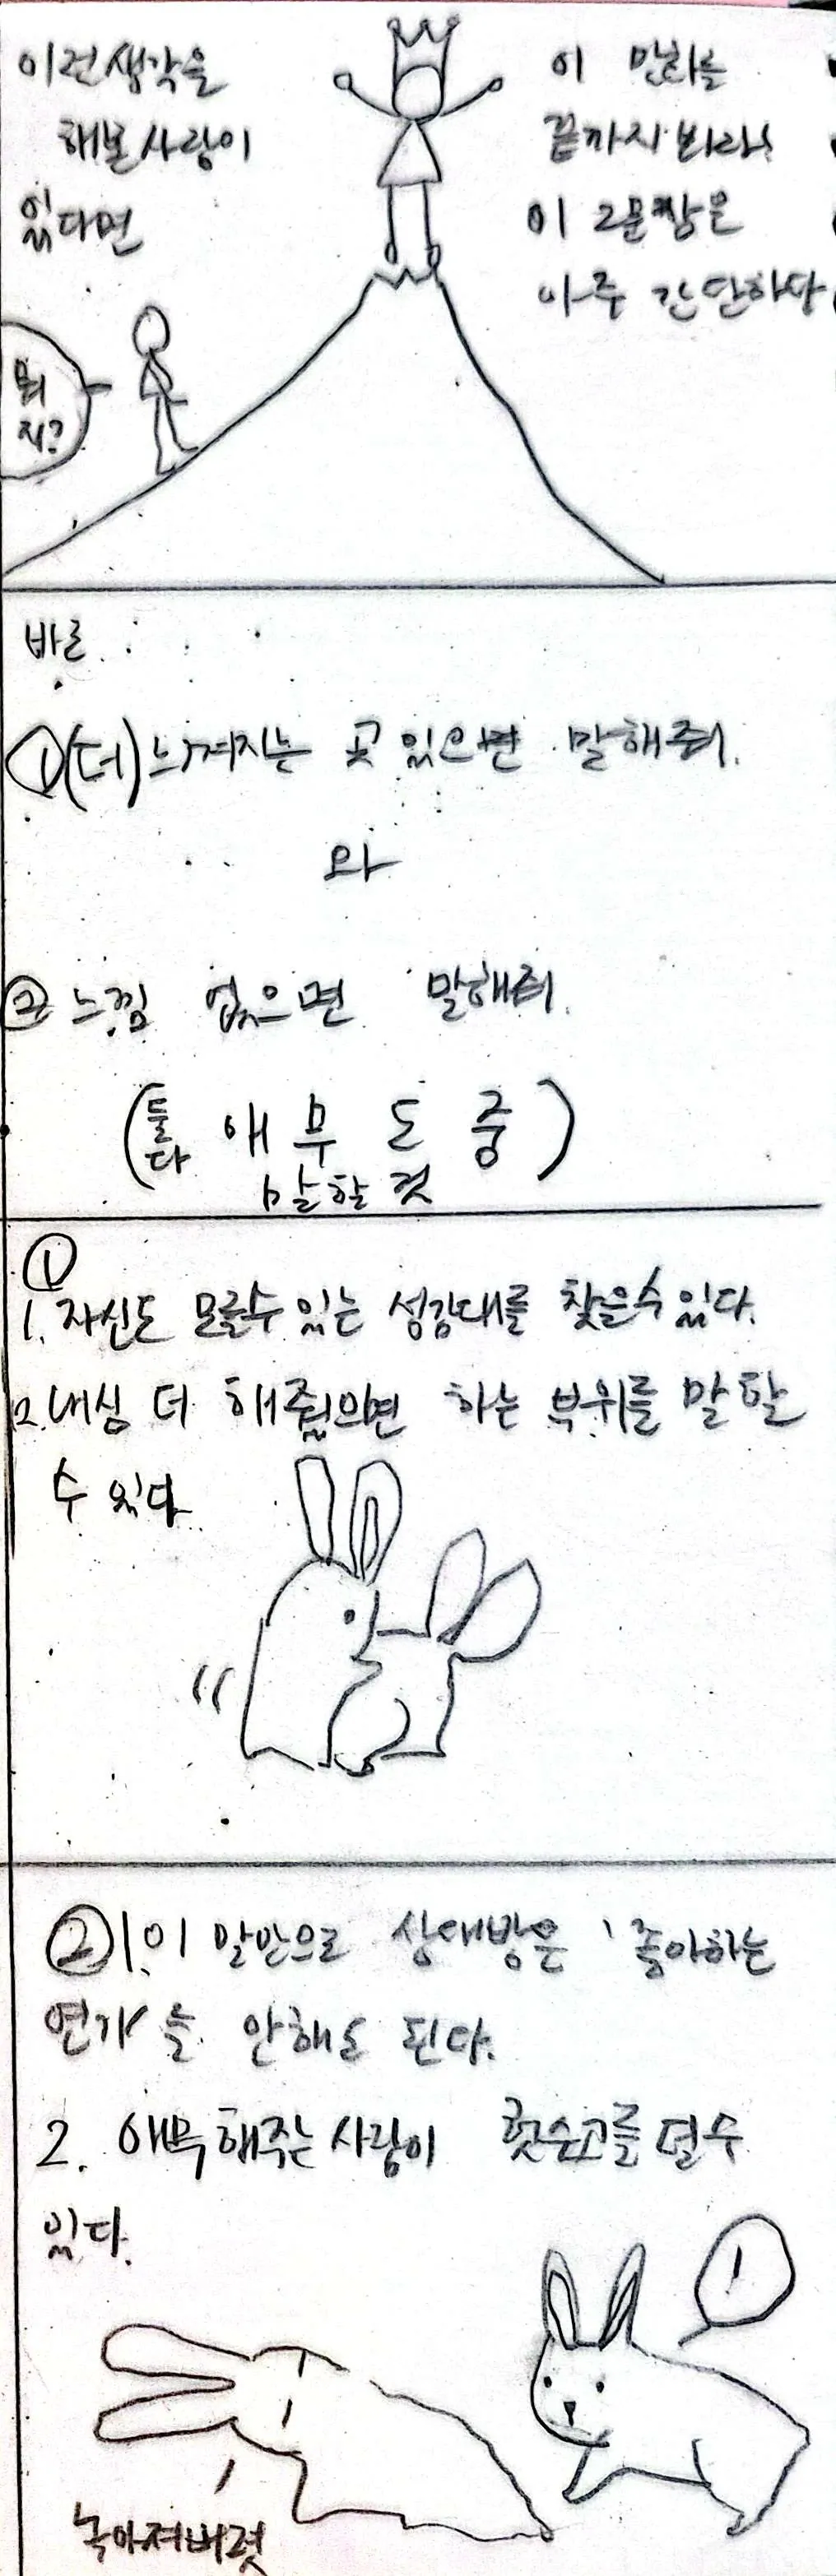 이런 생각을
해본 사람이
있다면
이 만화를
끝까지 봐라!
이 2문장은
아주 간단하다
뭐
지?
바로
①(더) 느껴지는 곳 있으면 말해줘.
와
② 느낌 없으면 말해줘.
(둘다 애무 도중
말할 것)
①
1. 자신도 모를수 있는 성감대를 찾을수 있다.
2. 내심 더 해줬으면 하는 부위를 말할
수 있다
② 1. 이 말만으로 상대방은 '좋아하는
연기'를 안해도 된다.
2. 애무해주는 사람이 헛수고를 덜수
있다.
!
녹아져버렷